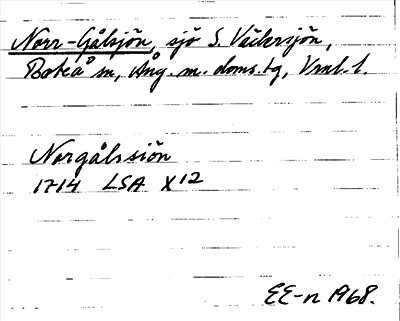 Norr-Gålsjön, sjö S. Väckersjön,
Boteå sn, Ång. m. doms.tg, Vnl. l.
Norgålssiön
1714 LSA X12
EE-n 1968.